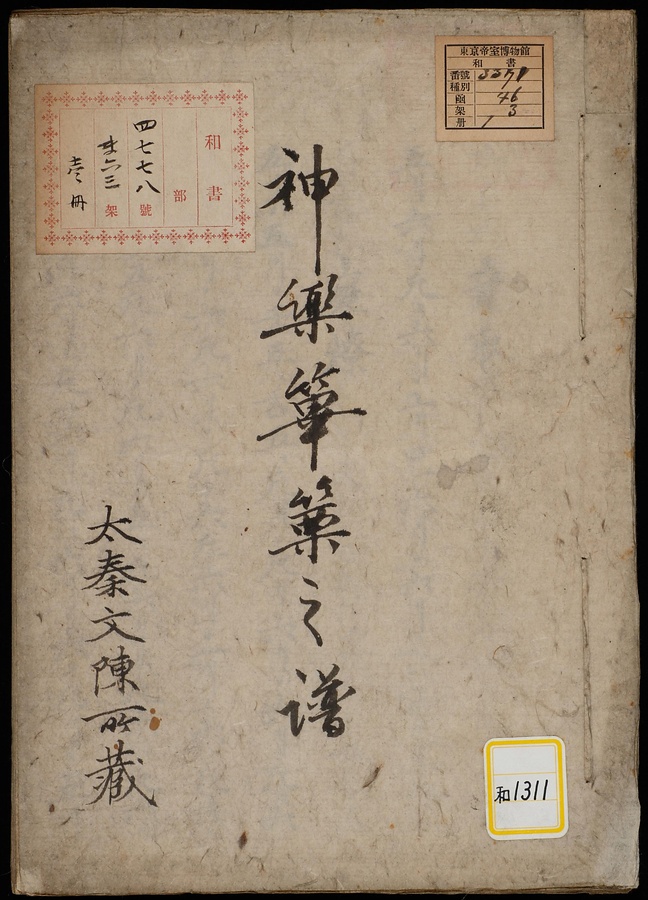 東京帝室博物館
和書
番號 3371
種別 1
函 46
架 3
册 1
和書
部
四七七八號
架
壱冊
神樂篳篥之譜
太秦文陳所藏
和1311